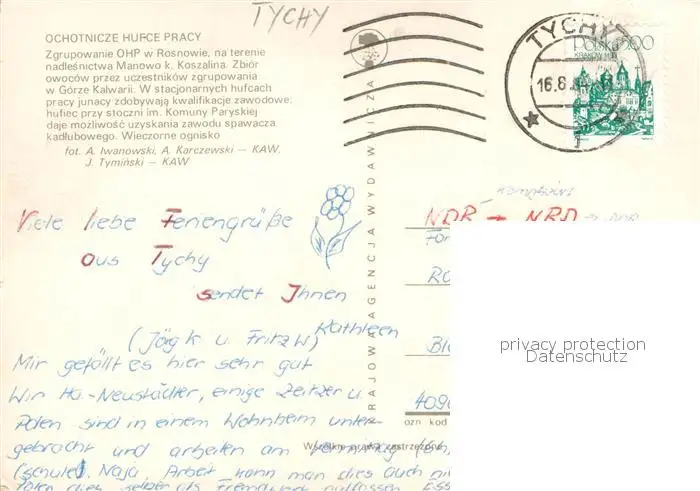 TYCHY
OCHOTNICZE HUFCE PRACY
Zgrupowanie OHP w Rosnowie, na terenie
nadleśnictwa Manowo k. Koszalina. Zbiór
owoców przez uczestników zgrupowania
w Górze Kalwarii. W stacjonarnych hufcach
pracy junacy zdobywają kwalifikacje zawodowe:
hufiec przy stoczni im. Komuny Paryskiej
daje możliwość uzyskania zawodu spawacza
kadłubowego. Wieczorne ognisko
fot. A. Iwanowski, A. Karczewski — KAW,
J. Tymiński — KAW
TYCHY
16.8
Polska 600
KRAJOWA AGENCJA WYDAWNICZA
Viele liebe Feriengrüße
aus Tychy
sendet Ihnen
Kathleen
(Jörg K u. Fritz W)
Mir gefällt es hier sehr gut
Wir Ha-Neustädter, einige Zeitzer u.
Polen sind in einem Wohnheim unter-
gebracht und arbeiten am
(schule). Naja, Arbeit kann man dies auch
NDR → NRD
409
ozn kod
Wszelkie prawa zastrzeżone
privacy protection
Datenschutz